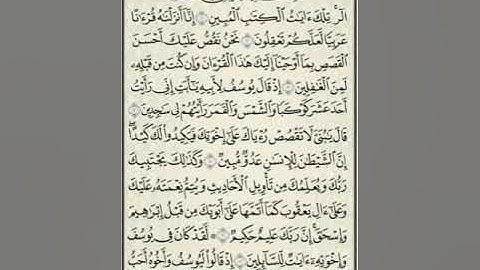 الٓر تِلْكَ ءَايَٰتُ ٱلْكِتَٰبِ ٱلْمُبِينِ ۝١ إِنَّآ أَنزَلْنَٰهُ قُرْءَٰنًا
عَرَبِيًّا لَّعَلَّكُمْ تَعْقِلُونَ ۝٢ نَحْنُ نَقُصُّ عَلَيْكَ أَحْسَنَ
ٱلْقَصَصِ بِمَآ أَوْحَيْنَآ إِلَيْكَ هَٰذَا ٱلْقُرْءَانَ وَإِن كُنتَ مِن قَبْلِهِۦ
لَمِنَ ٱلْغَٰفِلِينَ ۝٣ إِذْ قَالَ يُوسُفُ لِأَبِيهِ يَٰٓأَبَتِ إِنِّى رَأَيْتُ
أَحَدَ عَشَرَ كَوْكَبًا وَٱلشَّمْسَ وَٱلْقَمَرَ رَأَيْتُهُمْ لِى سَٰجِدِينَ ۝٤
قَالَ يَٰبُنَىَّ لَا تَقْصُصْ رُءْيَاكَ عَلَىٰٓ إِخْوَتِكَ فَيَكِيدُوا۟ لَكَ كَيْدًا ۖ
إِنَّ ٱلشَّيْطَٰنَ لِلْإِنسَٰنِ عَدُوٌّ مُّبِينٌ ۝٥ وَكَذَٰلِكَ يَجْتَبِيكَ
رَبُّكَ وَيُعَلِّمُكَ مِن تَأْوِيلِ ٱلْأَحَادِيثِ وَيُتِمُّ نِعْمَتَهُۥ عَلَيْكَ
وَعَلَىٰٓ ءَالِ يَعْقُوبَ كَمَآ أَتَمَّهَا عَلَىٰٓ أَبَوَيْكَ مِن قَبْلُ إِبْرَٰهِيمَ
وَإِسْحَٰقَ ۚ إِنَّ رَبَّكَ عَلِيمٌ حَكِيمٌ ۝٦ ۞ لَّقَدْ كَانَ فِى يُوسُفَ
وَإِخْوَتِهِۦٓ ءَايَٰتٌ لِّلسَّآئِلِينَ ۝٧ إِذْ قَالُوا۟ لَيُوسُفُ وَأَخُوهُ أَحَبُّ